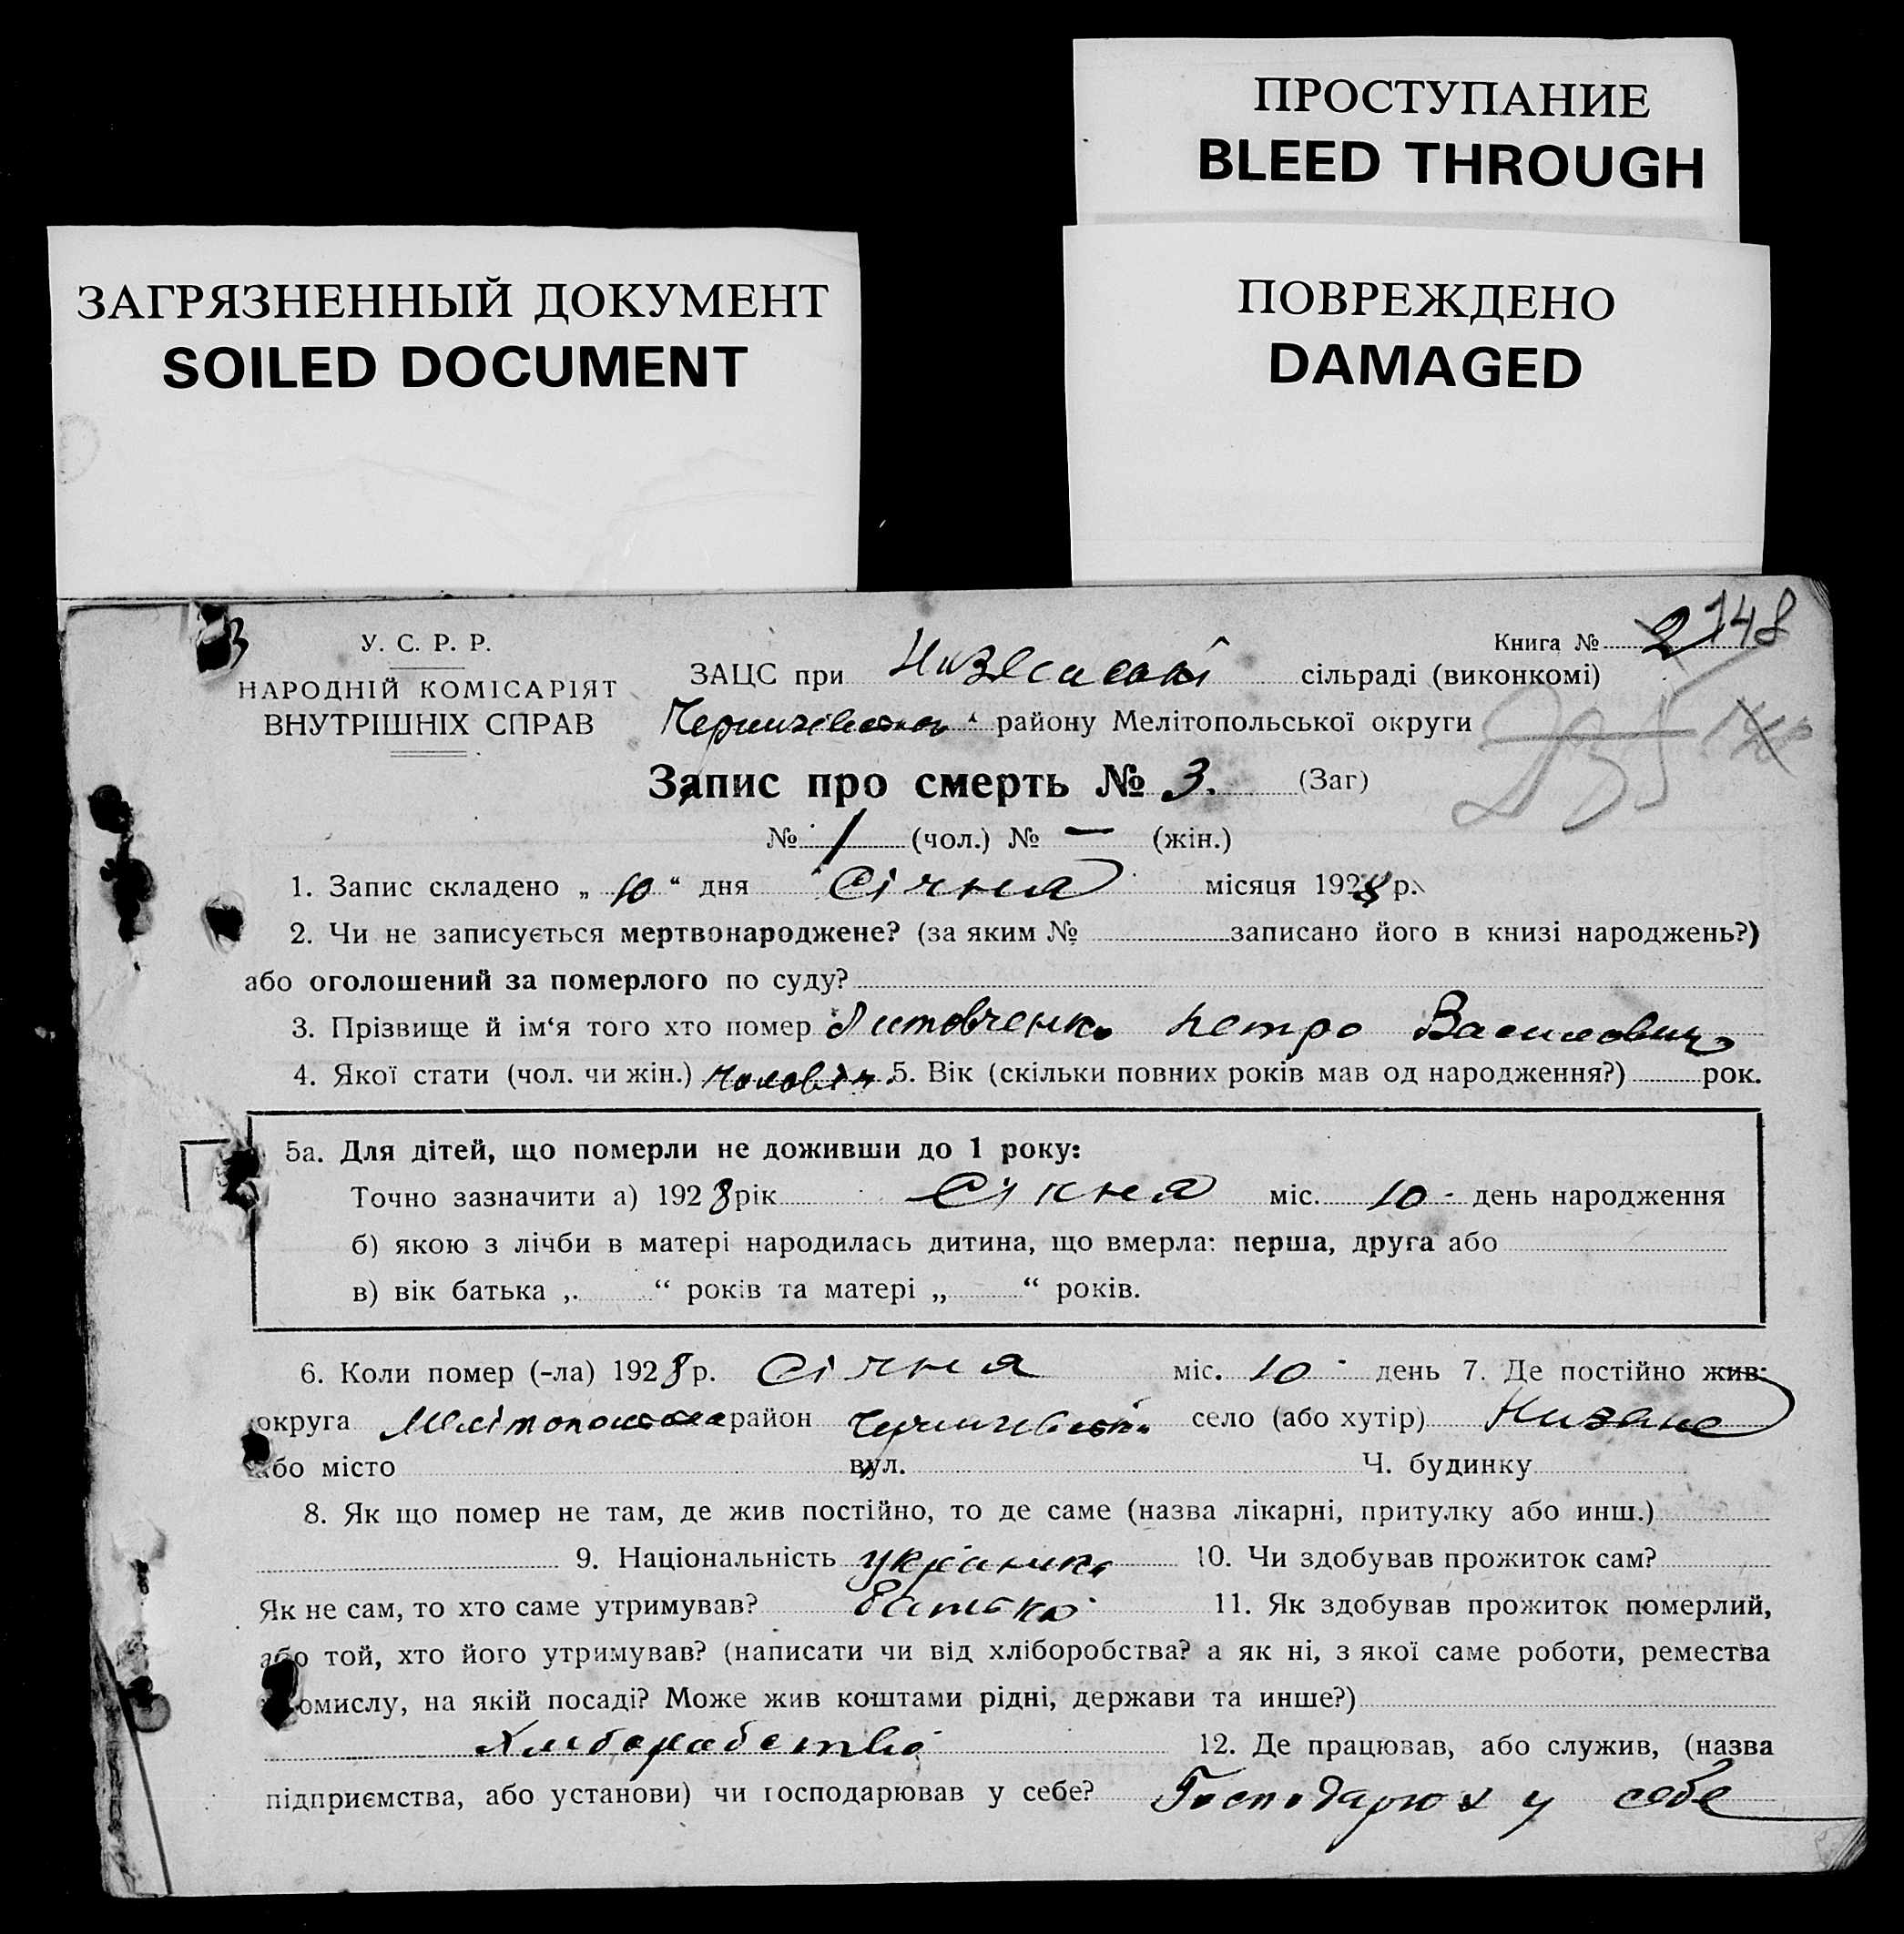 ПРОСТУПАНИЕ
BLEED THROUGH
ЗАГРЯЗНЕННЫЙ ДОКУМЕНТ
SOILED DOCUMENT
ПОВРЕЖДЕНО
DAMAGED
148
У. С. Р. Р.
НАРОДНІЙ КОМІСАРІЯТ
ВНУТРІШНІХ СПРАВ
Книга № 2
ЗАЦС при сільраді (виконкомі)
району Мелітопольської округи
Запис про смерть № 3. (Заг)
№ 1 (чол.) № — (жін.)
1. Запис складено „ 10 “ дня Січня місяця 1928 р.
2. Чи не записується мертвонароджене? (за яким № записано його в книзі народжень?)
або оголошений за померлого по суду?
3. Прізвище й ім‘я того хто помер Литовченко Петро Василович
4. Якої стати (чол. чи жін.) Чоловіч. 5. Вік (скільки повних років мав од народження?) рок.
5а. Для дітей, що померли не доживши до 1 року:
Точно зазначити а) 1928 рік Січня міс. 10 день народження
б) якою з лічби в матері народилась дитина, що вмерла: перша, друга або
в) вік батька „ “ років та матері „ “ років.
6. Коли помер (-ла) 1928 р. Січня міс. 10 день 7. Де постійно жив:
округа район село (або хутір) Низяне
або місто вул. Ч. будинку
8. Як що помер не там, де жив постійно, то де саме (назва лікарні, притулку або инш.)
9. Національність 10. Чи здобував прожиток сам?
Як не сам, то хто саме утримував? батько 11. Як здобував прожиток померлий,
або той, хто його утримував? (написати чи від хліборобства? а як ні, з якої саме роботи, ремества
промислу, на якій посаді? Може жив коштами рідні, держави та инше?)
12. Де працював, або служив, (назва
підприємства, або установи) чи господарював у себе? у себе